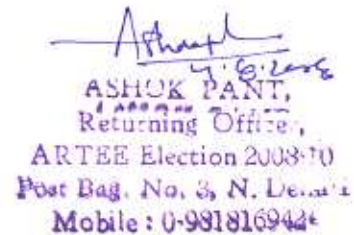 ASHOK PANT,
Returning Officer,
ARTEE Election 2008-10
Post Bag. No. 3, N. Delhi
Mobile : 0-981816942